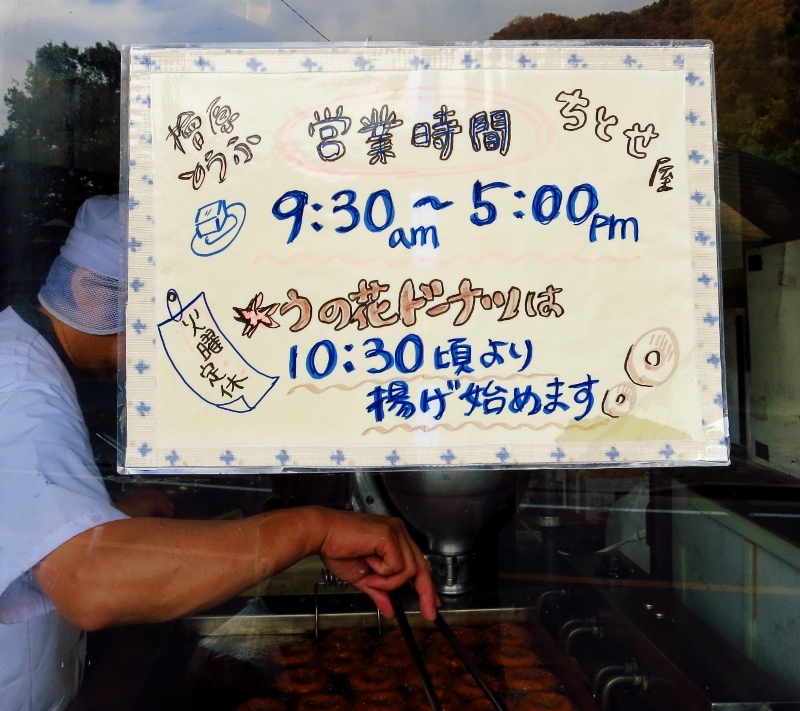 檜原とうふ
営業時間
ちとせ屋
9:30am~5:00pm
火曜定休
★うの花ドーナツは
10:30頃より
揚げ始めます